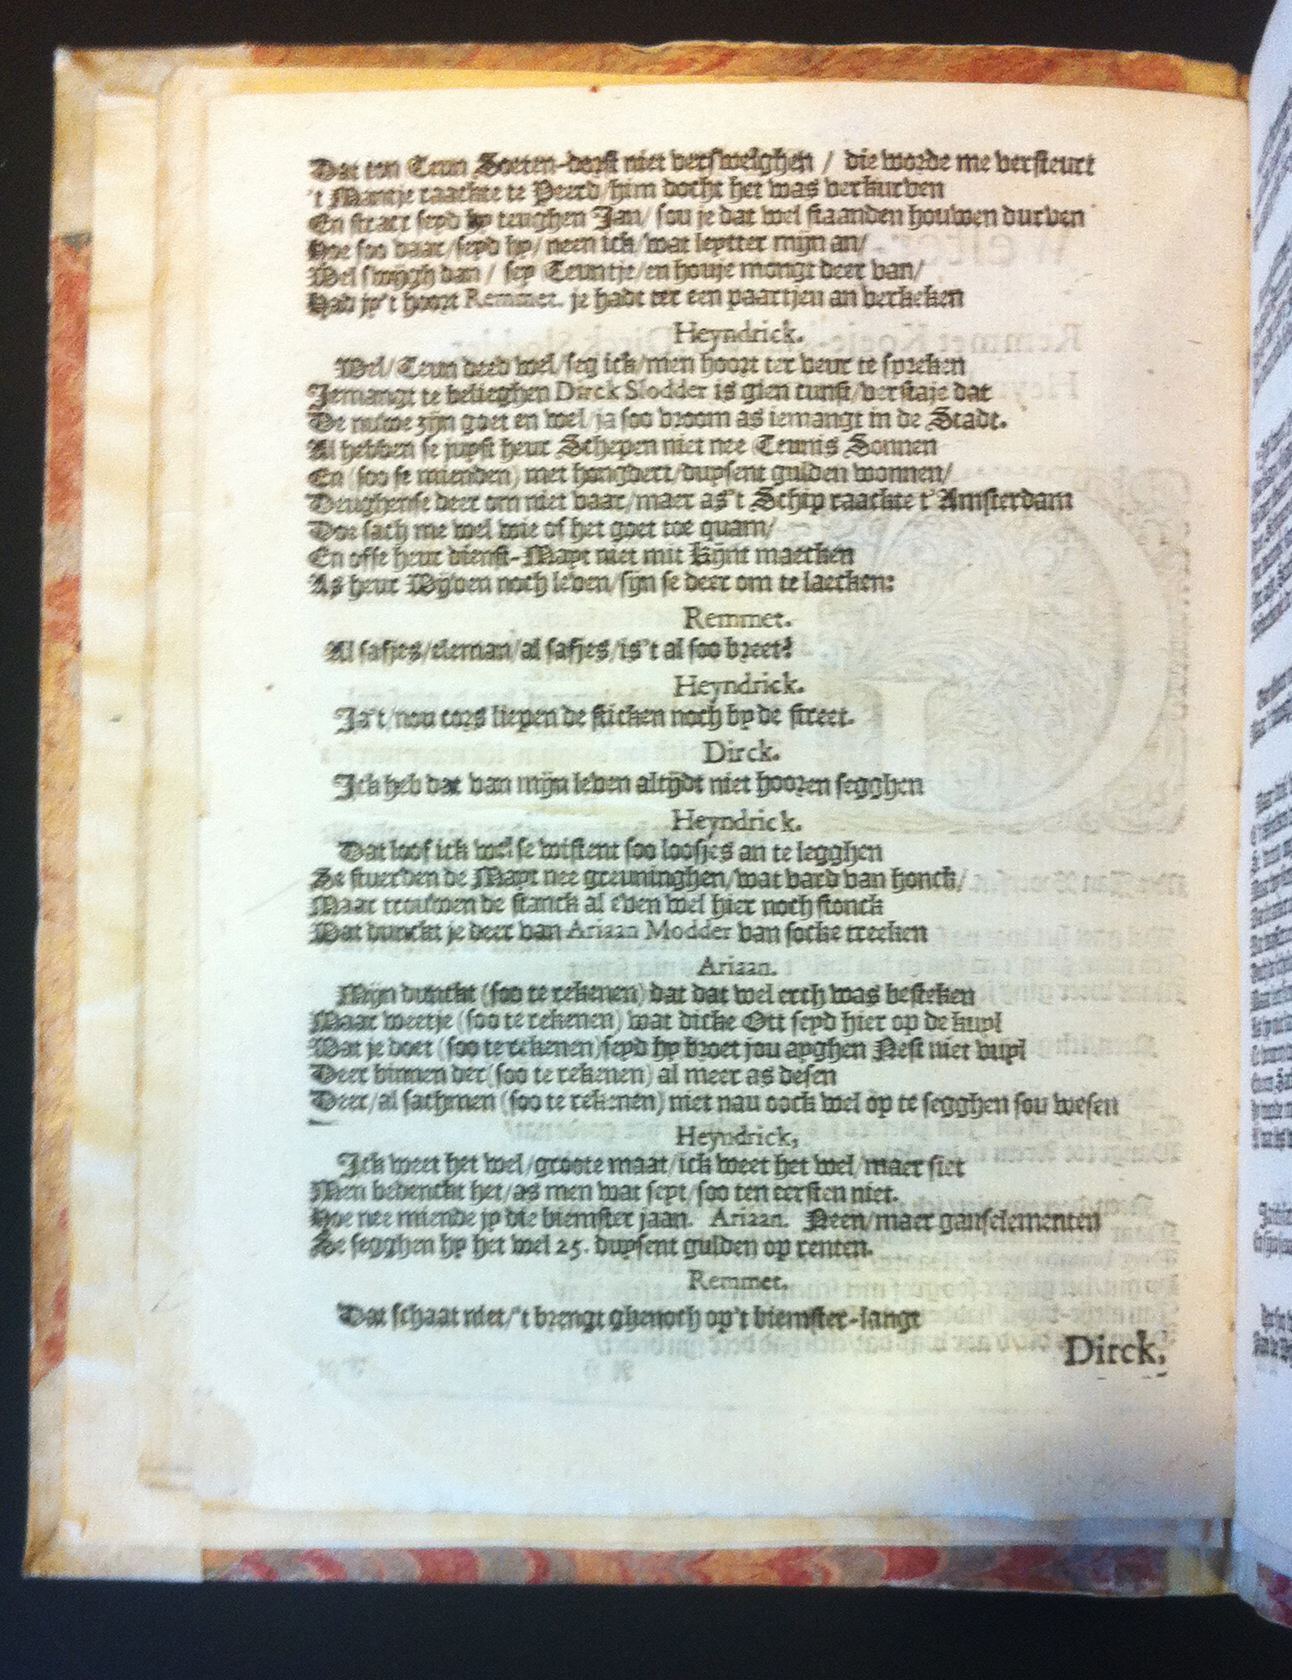 Dat ton Teun Soeten-dorst niet verswelghen / die worde me versteurt
't Mantje raackte te Peerd/him docht het was verkurven
En stract seyd hy teughen Jan/ sou je dat wel staanden houwen durven
Hoe soo vaar/seyd hy/neen ick/wat leytter mijn an/
Wel swygh dan / sey Teuntje/en houje mongt deer van/
Had jy't hoort Remmet. je hadt ter een paartjen an verkeken
Heyndrick.
Wel/Teun deed wel/seg ick/men hoort ter veur te spreken
Jemangt te belieghen Dirck Slodder is gien cunst/verstaje dat
De nuwe zijn goet en wel/ja soo vroom as iemangt in de Stadt.
Al hebben se juyst heur Schepen niet nee Teunis Sonnen
En (soo se mienden) met hongdert/duysent gulden wonnen/
Deughense deer om niet vaar/maer as't Schip raackte t'Amsterdam
Doe sach me wel wie of het goet toe quam/
En offe heur dienst-Mayt niet mit Kijnt maecken
As heur Wijven noch leven/sijn se deer om te laecken:
Remmet.
Al safjes/eleman/al safjes/is't al soo breet?
Heyndrick.
Ja't/nou cors liepen de sticken noch by de street.
Dirck.
Ick heb dat van mijn leven altijdt niet hooren segghen
Heyndrick.
Dat loof ick wel se wistent soo loosjes an te legghen
Se stuerden de Mayt nee greuninghen/wat vard van honck/
Maar trouwen de stanck al even wel hier noch stonck
Wat dunckt je deer van Ariaan Modder van socke treeken
Ariaan.
Mijn dunckt (soo te rekenen) dat dat wel erch was besteken
Maar weetje (soo te rekenen) wat dicke Ott seyd hier op de kuyl
Wat je doet (soo te rekenen)seyd hy broet jou ayghen Nest niet vuyl
Deer binnen der(soo te rekenen) al meer as desen
Deer/al sachmen (soo te rekenen) niet nau oock wel op te segghen sou wesen
Heyndrick,
Ick weet het wel/groote maat/ick weet het wel/maer siet
Men bedenckt het/as men wat seyt/soo ten eersten niet.
Hoe nee miende jy die biemster jaan. Ariaan. Neen/maer ganselementen
Se segghen hy het wel 25. duysent gulden op renten.
Remmet.
Dat schaat niet/'t brengt ghenoch op't biemster-langt
Dirck,